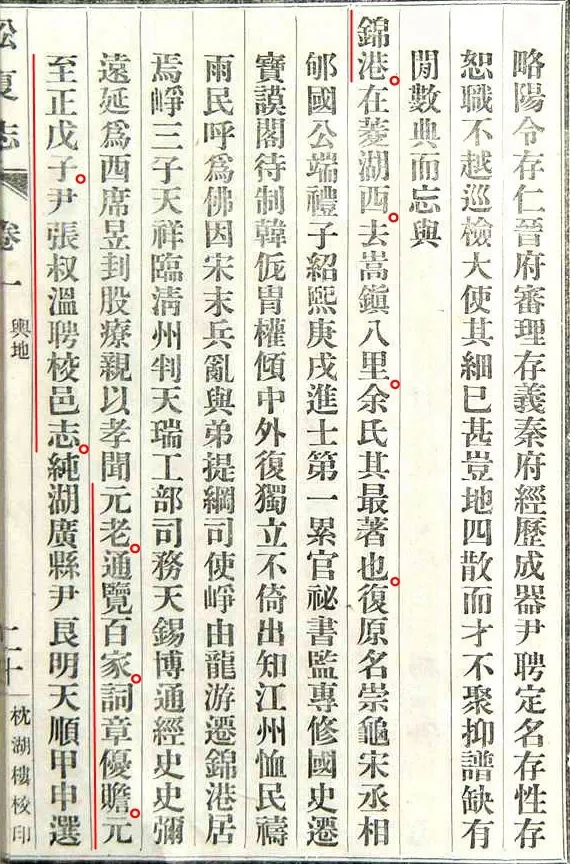 略陽令存仁晉府審理存義秦府經歷成器尹聘定名存性存
恕職不越巡檢大使其細已甚豈地四散而才不聚抑譜缺有
閒數典而忘與
錦港在菱湖西去嵩鎮八里余氏其最著也復原名崇龜宋丞相
邠國公端禮子紹熙庚戌進士第一累官祕書監專修國史遷
寶謨閣待制韓侂胄權傾中外復獨立不倚出知江州恤民禱
雨民呼爲佛因宋末兵亂與弟提綱司使崢由龍游遷錦港居
焉崢三子天祥臨淸州判天瑞工部司務天錫博通經史史彌
遠延爲西席昱刲股療親以孝聞元老通覽百家詞章優贍元
至正戊子尹張叔溫聘校邑志純湖廣縣尹良明天順甲申選
夏志
卷一
輿地
二十
枕湖樓校印